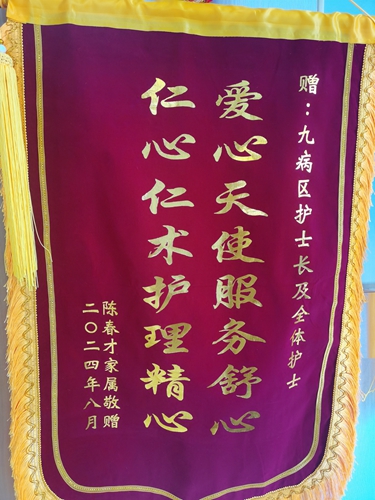 赠：九病区护士长及全体护士
爱心天使服务舒心
仁心仁术护理精心
陈春才家属敬赠
二〇二四年八月